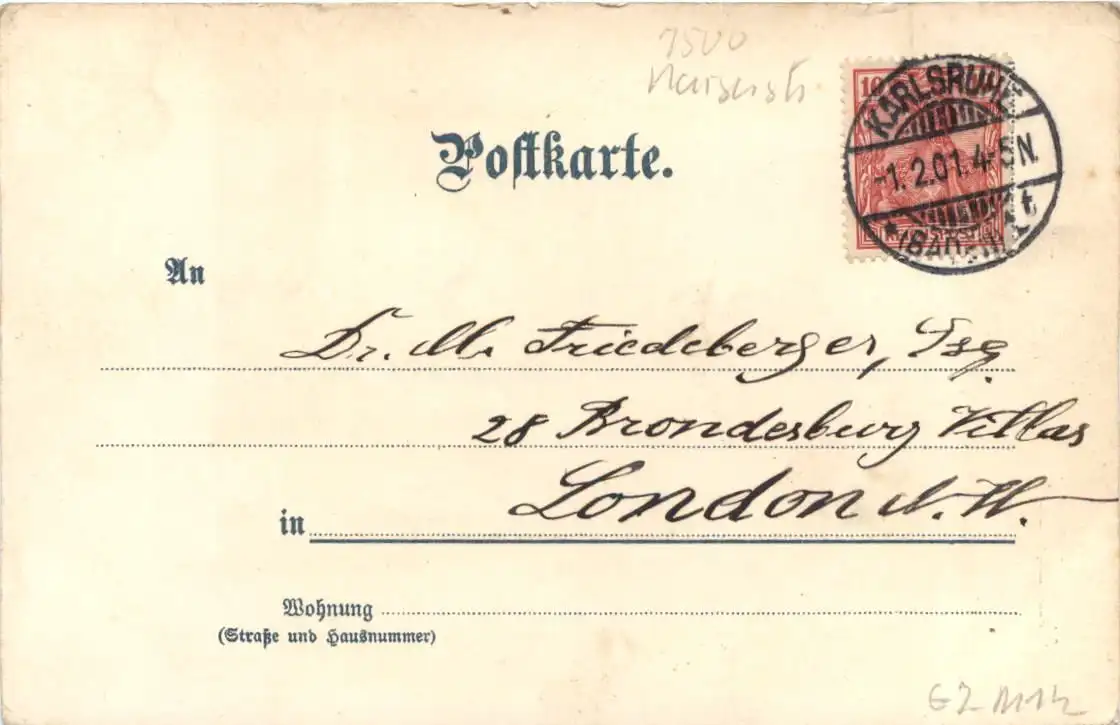 7500
Kaiserstr
Postkarte.
10
KARLSRUHE
-1.2.01.4-5N.
* (BADEN) t
An
Dr. M. Friedeberger, Esq
28 Brondesbury Villas
in London N.W.
Wohnung
(Straße und Hausnummer)